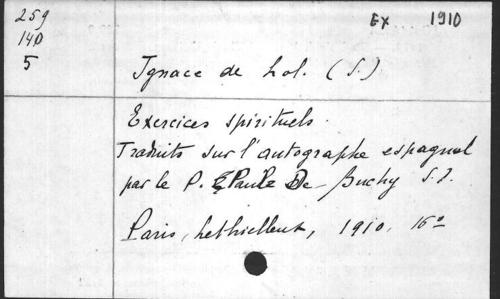 259
EX 1910
14D
5
Ignace de Lol. (S.)
Exercices spirituels.
Traduits sur l'autographe espagnol
par le P. Paul De Buchy S.J.
Paris, Lethielleux, 1910. 16º